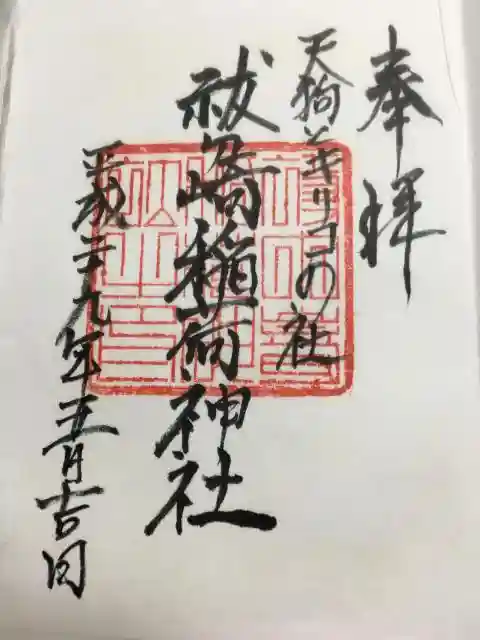 奉拝
天狗とキリコの社
祓ヶ崎稲荷神社
平成二十九年五月吉日